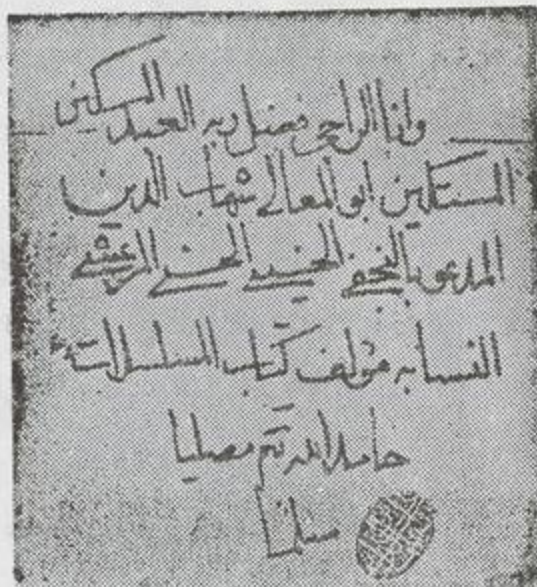 وانا الراجي فضل ربه العبد المسكين
المستكين ابو المعالي شهاب الدين
المدعو بالنجفي الحسيني المرعشي
النسابه مؤلف كتاب المسلسلات
حامدا لله ثم مصليا
مسلما